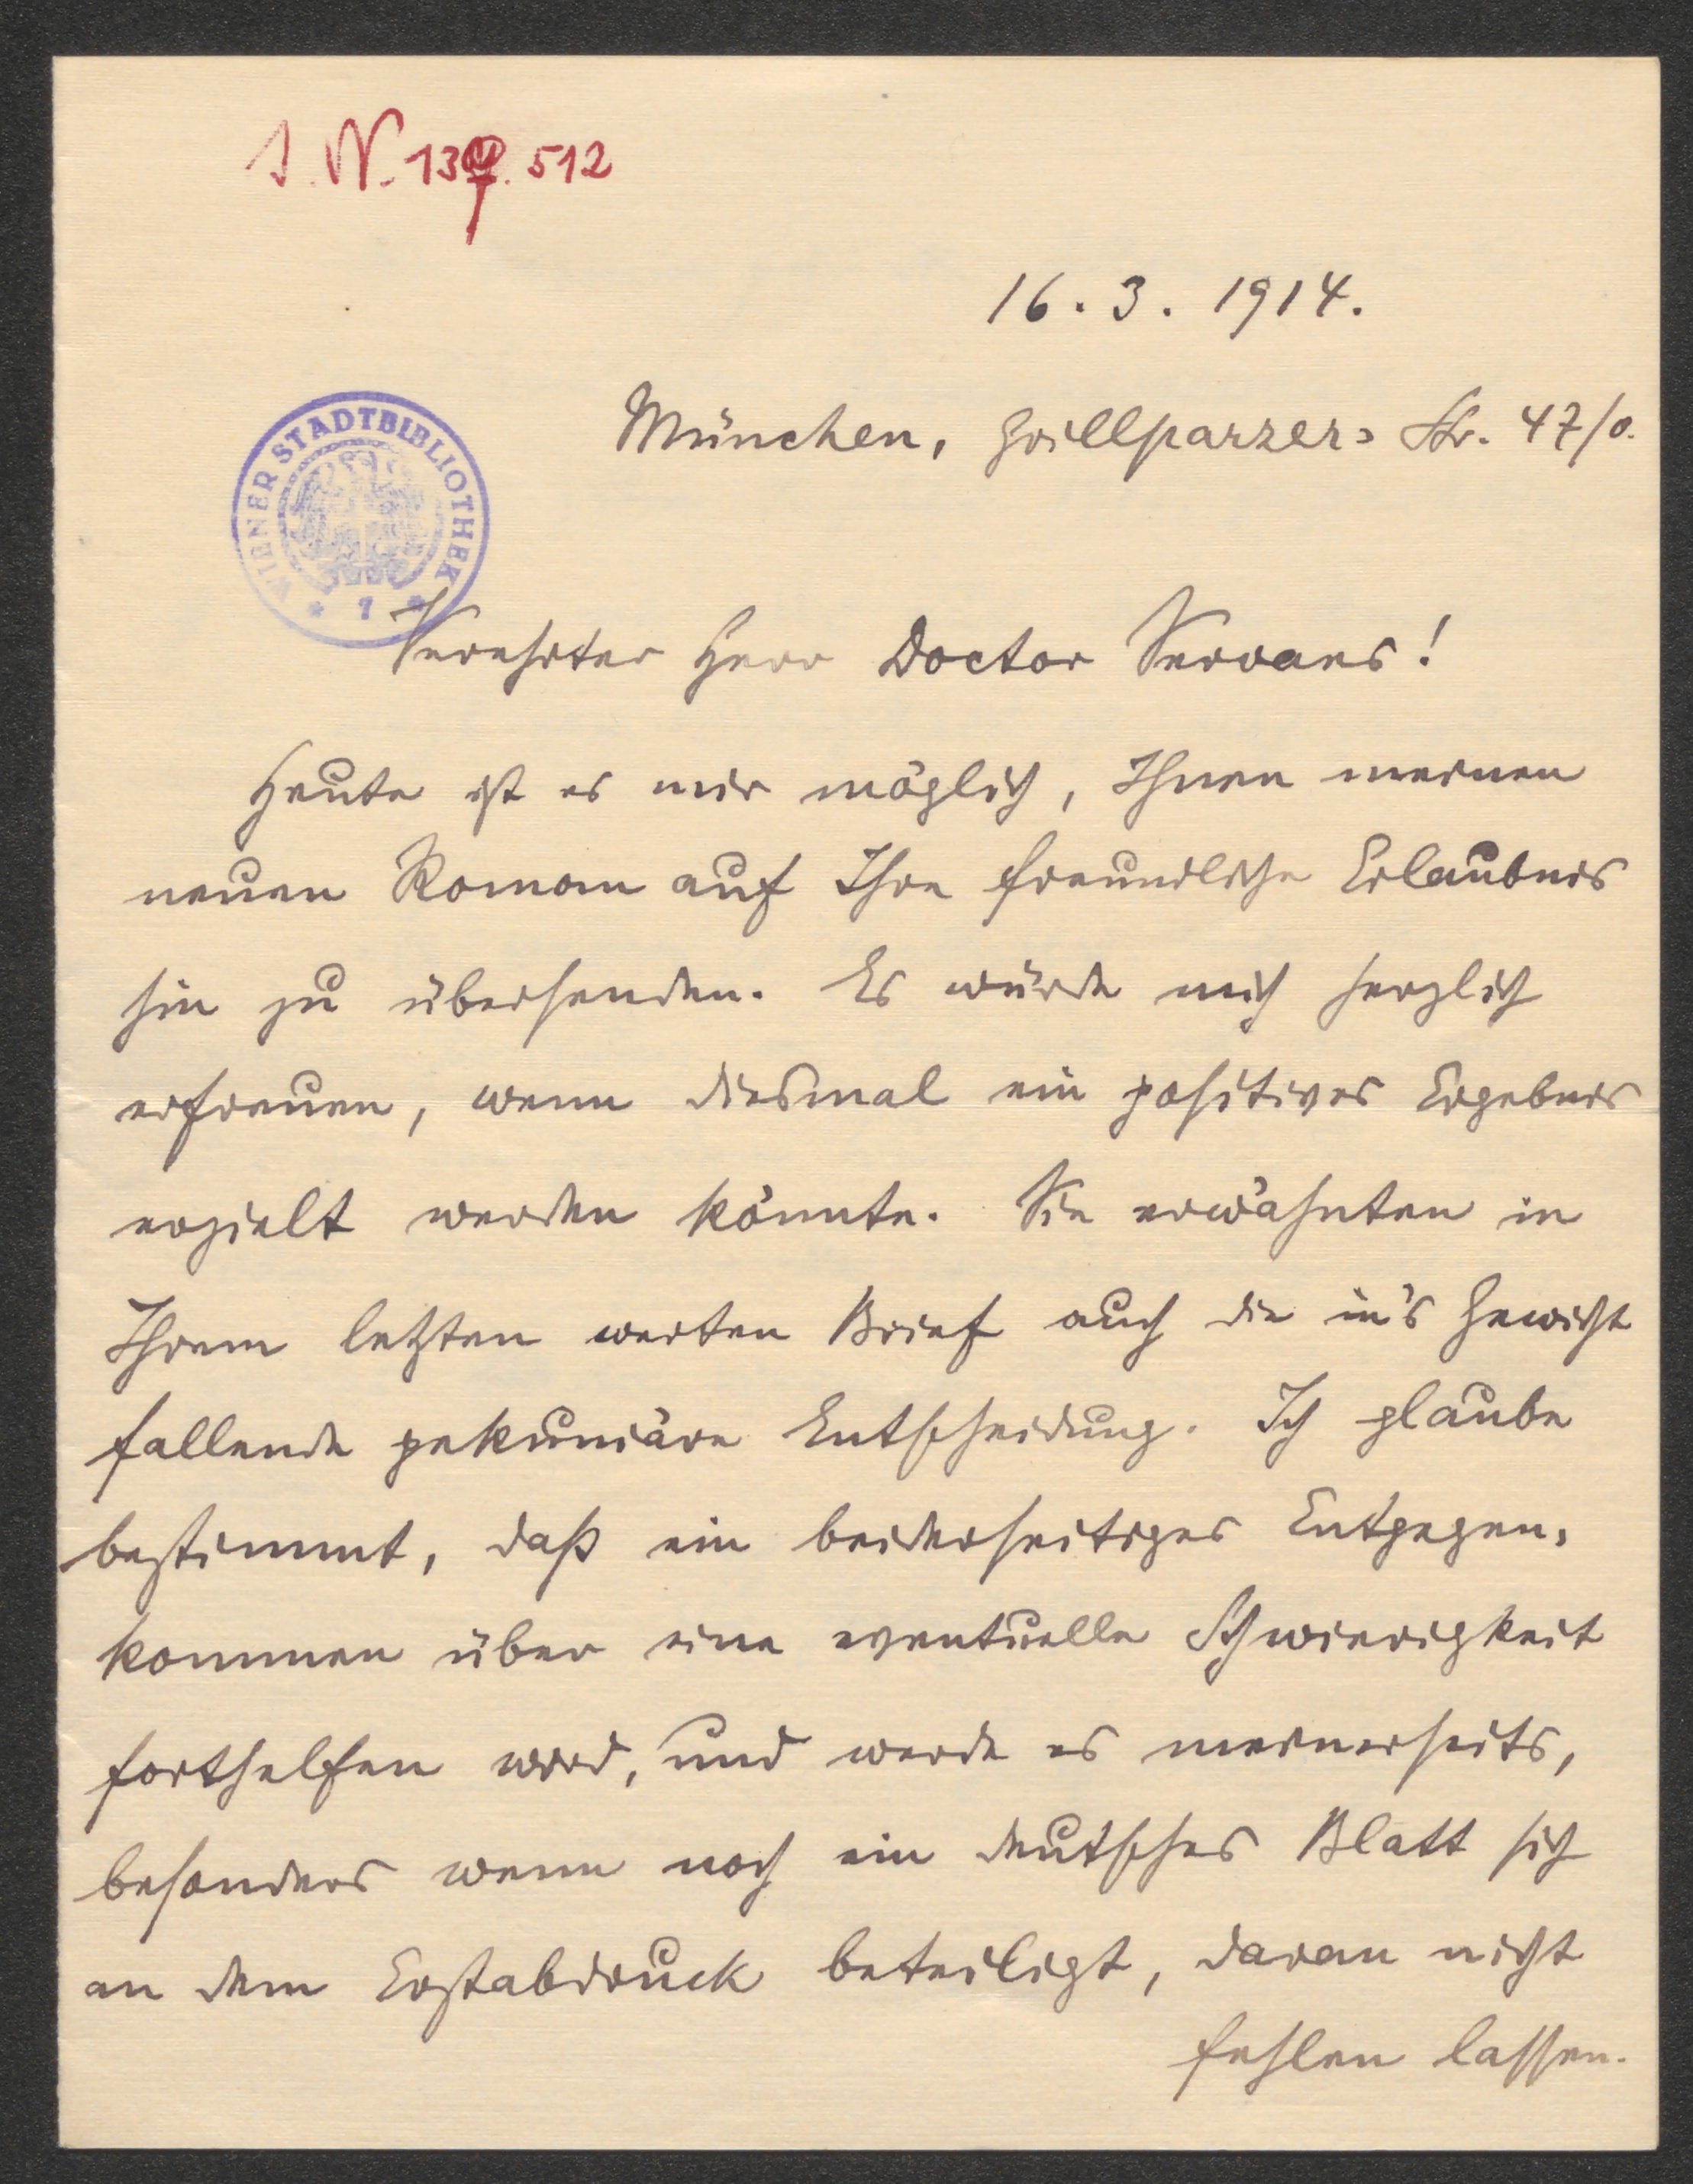 I. N. 137.512
16. 3. 1914.
München, Grillparzer-Str. 47/0.
WIENER STADTBIBLIOTHEK
* 7 *
Verehrter Herr Doctor Servaes!
Heute ist es mir möglich, Ihnen meinen
neuen Roman auf Ihre freundliche Erlaubnis
hin zu übersenden. Es würde mich herzlich
erfreuen, wenn diesmal ein positives Ergebnis
erzielt werden könnte. Sie erwähnten in
Ihrem letzten werten Brief auch die in's Gewicht
fallende pekuniäre Entscheidung. Ich glaube
bestimmt, daß ein beiderseitiges Entgegen-
kommen über eine eventuelle Schwierigkeit
forthelfen wird, und werde es meinerseits,
besonders wenn noch ein deutsches Blatt sich
an dem Erstabdruck beteiligt, daran nicht
fehlen lassen.